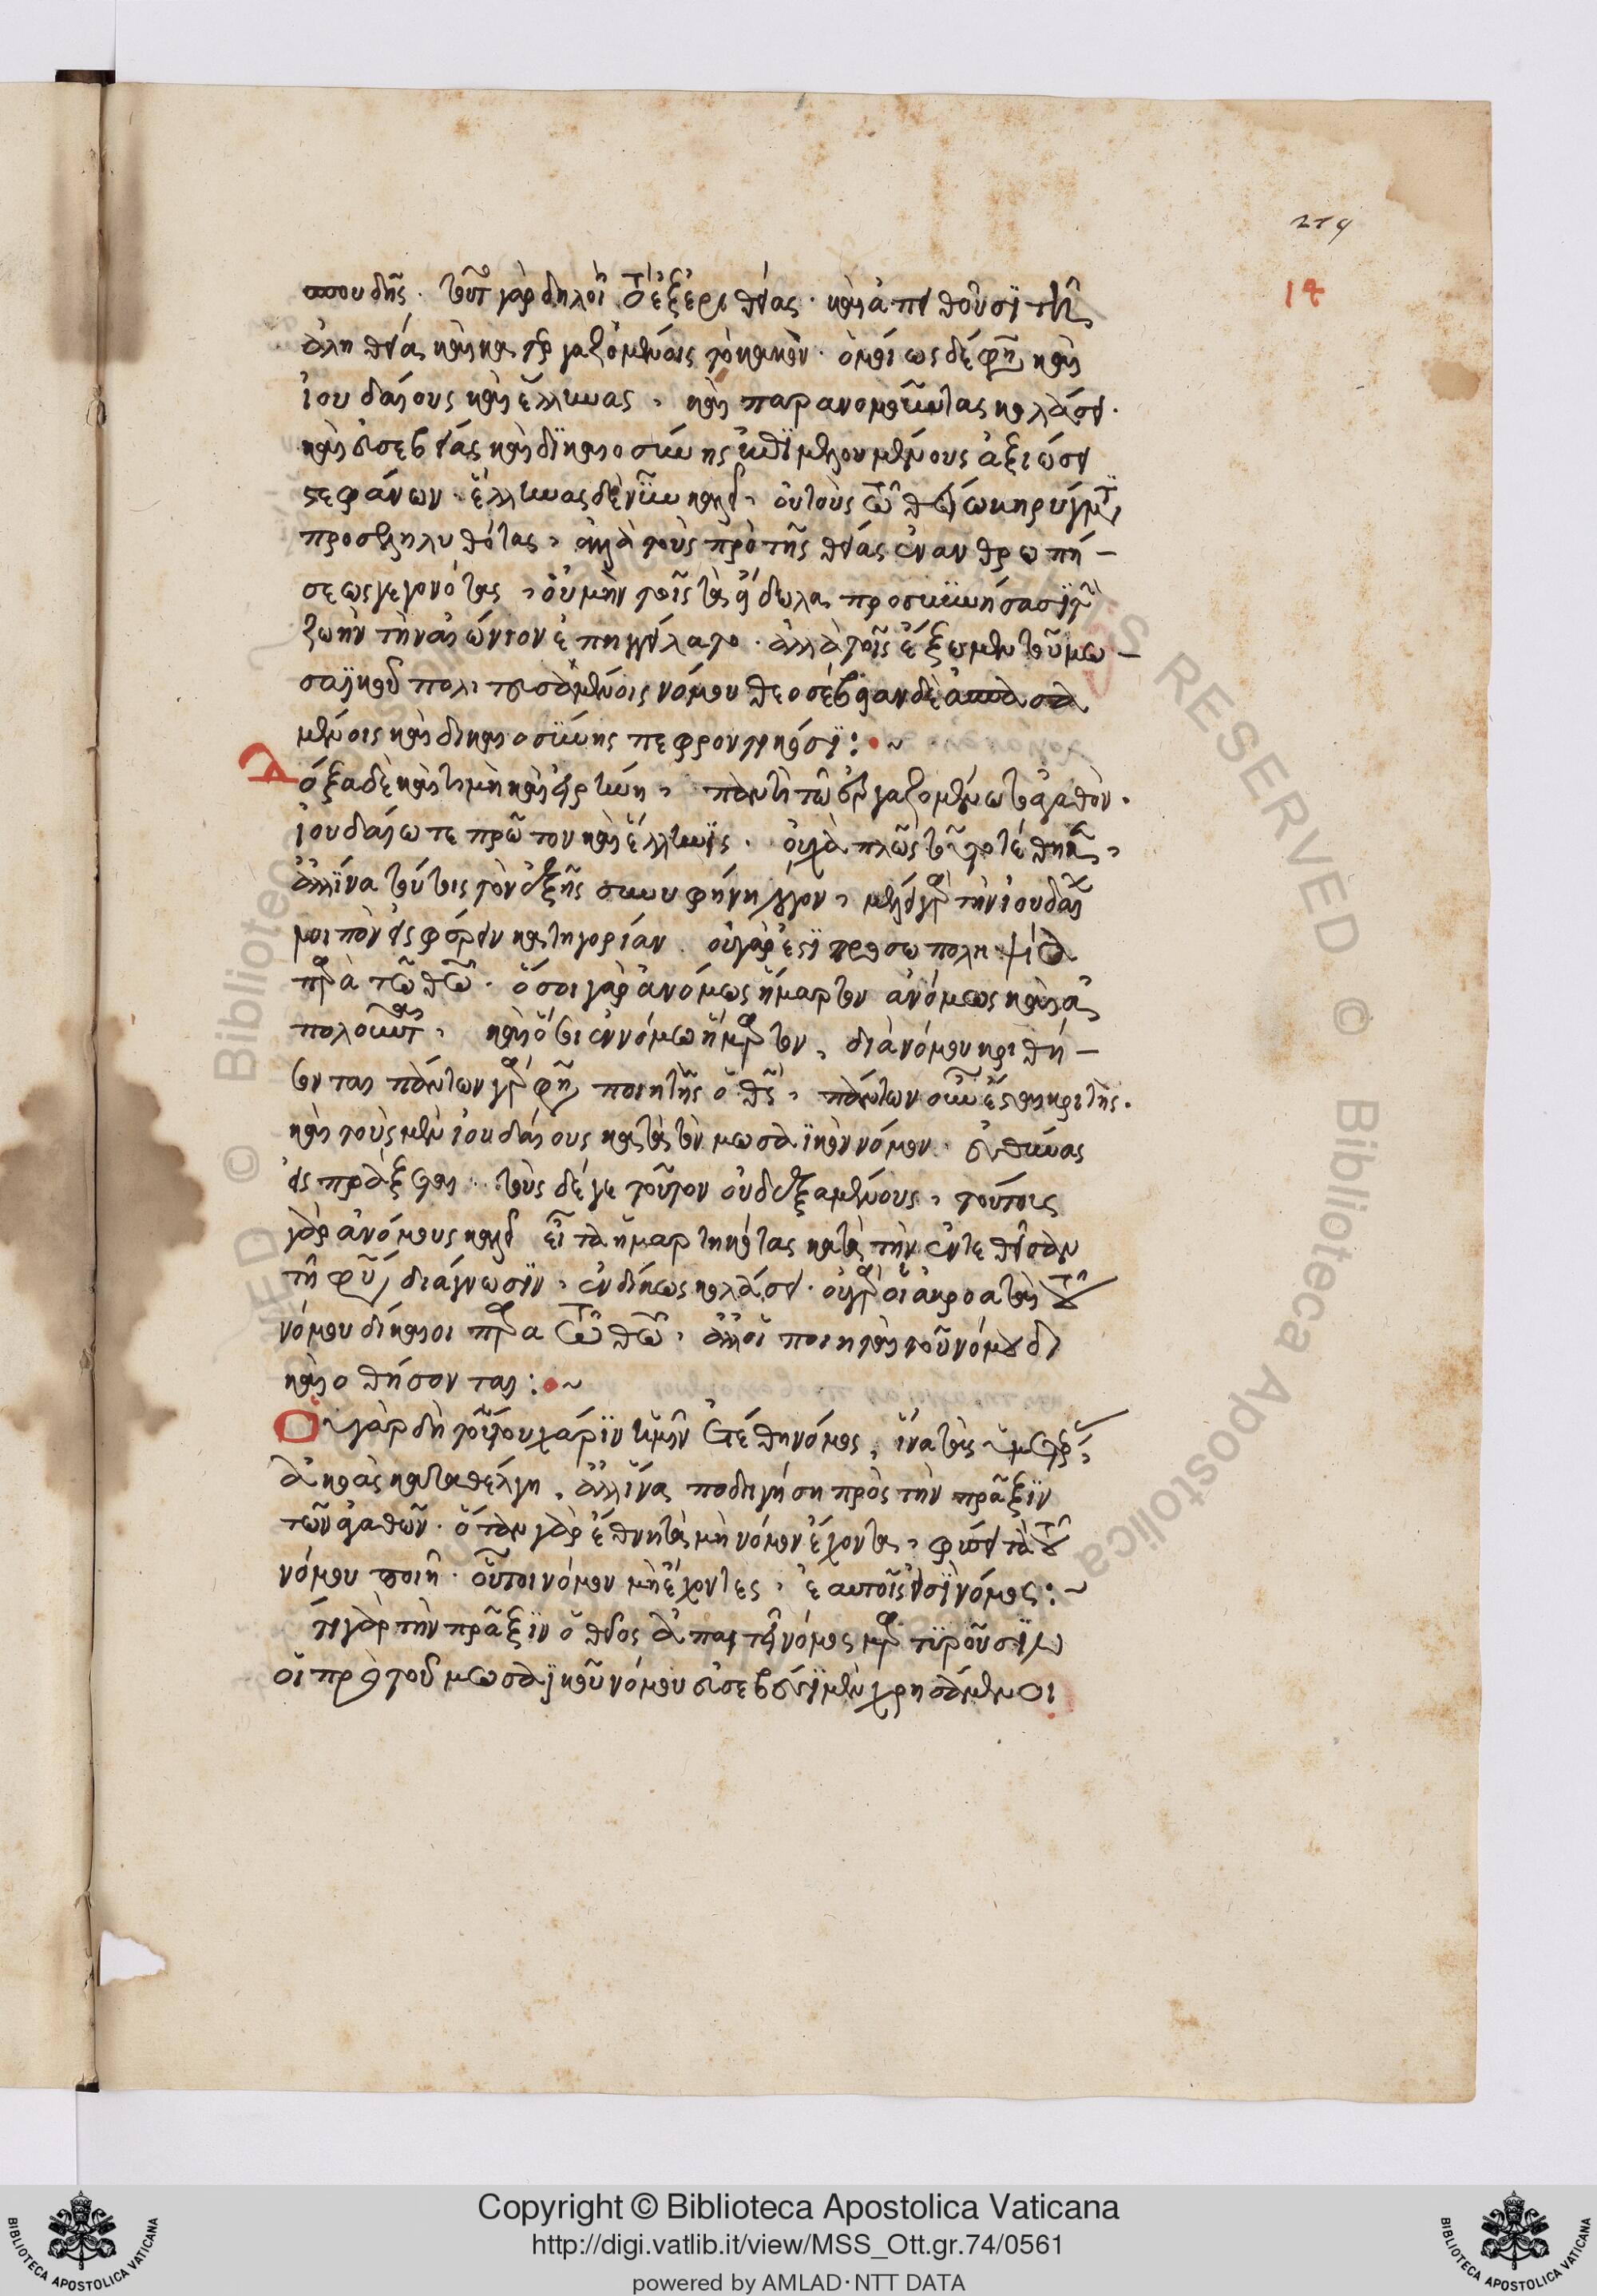 279
14
σπουδῆς. τοῦτο γὰρ δηλοῖ τὸ ἐξ ἐριθείας. καὶ ἀπειθοῦσι τῇ
ἀληθείᾳ καὶ κατεργαζομένοις τὸ κακόν. ὁμοίως δέ φησι καὶ
ἰουδαίους καὶ ἕλληνας, καὶ παρανομοῦντας κολάσει.
καὶ εὐσεβείας καὶ δικαιοσύνης ἐπιμελουμένους ἀξιώσει
στεφάνων. ἕλληνας δὲ νῦν καλεῖ, οὐ τοὺς τῷ θείῳ κηρύγματι
προσεληλυθότας, ἀλλὰ τοὺς πρὸ τῆς θείας ἐνανθρωπή-
σεως γεγονότας, οὐ μὴν τοῖς τὰ εἴδωλα προσκυνήσασι τὴν
ζωὴν τὴν αἰώνιον ἐπηγγείλατο. ἀλλὰ τοῖς ἔξω μὲν τοῦ μω-
σαϊκοῦ πολιτευσαμένοις νόμου θεοσέβειαν δὲ ἀσπασα
μένοις καὶ δικαιοσύνης πεφροντικόσι:~
Δόξα δὲ καὶ τιμὴ καὶ εἰρήνη, παντὶ τῷ ἐργαζομένῳ τὸ ἀγαθόν.
ἰουδαίῳ τε πρῶτον καὶ ἕλληνι. οὐχ ἁπλῶς τοῦτο τέθηκεν,
ἀλλ' ἵνα τούτοις τὸν ἑξῆς συνυφήνῃ λόγον, μέλλει γὰρ τὴν ἰουδαίων
λοιπὸν εἰσφέρειν κατηγορίαν. οὐ γάρ ἐστι προσωποληψία
παρὰ τῷ θεῷ. ὅσοι γὰρ ἀνόμως ἥμαρτον ἀνόμως καὶ ἀ
πολοῦνται, καὶ ὅσοι ἐν νόμῳ ἥμαρτον, διὰ νόμου κριθή-
σονται πάντων γάρ φησι ποιητὴς ὁ θεός, πάντων οὖν ἐστι κριτής.
καὶ τοὺς μὲν ἰουδαίους κατὰ τὸν μωσαϊκὸν νόμον. εὐθύνας
εἰσπράξεται. τοὺς δέ γε τοῦτον οὐ δεξαμένους, τούτοις
γὰρ ἀνόμους καλεῖ εἶτα ἡμαρτηκότας κατὰ τὴν ἐντεθεῖσαν
τῇ φύσει διάγνωσιν, ἐνδίκως κολάσει. οὐ γὰρ οἱ ἀκροαταὶ τοῦ
νόμου δίκαιοι παρὰ τῷ θεῷ, ἀλλ' οἱ ποιηταὶ τοῦ νόμου δι
καιωθήσονται:~
Οὐ γὰρ δὴ τούτου χάριν ἡμῖν ἐτέθη νόμος, ἵνα τὰς ἡμετέρας
ἀκοὰς καταθέλγῃ, ἀλλ' ἵνα ποδηγήσῃ πρὸς τὴν πρᾶξιν
τῶν ἀγαθῶν. ὅταν γὰρ ἔθνη τὰ μὴ νόμον ἔχοντα, φύσει τὰ τοῦ
νόμου ποιῇ. οὗτοι νόμον μὴ ἔχοντες, ἑαυτοῖς εἰσι νόμος:~
ὅτι γὰρ τὴν πρᾶξιν ὁ θεῖος ἀπαιτεῖ νόμος μαρτυροῦσιν
οἱ πρὸ τοῦ μωσαϊκοῦ νόμου εὐσεβέσι μὲν χρησάμενοι
Copyright © Biblioteca Apostolica Vaticana
http://digi.vatlib.it/view/MSS_Ott.gr.74/0561
powered by AMLAD·NTT DATA
BIBLIOTECA APOSTOLICA VATICANA
BIBLIOTECA APOSTOLICA VATICANA